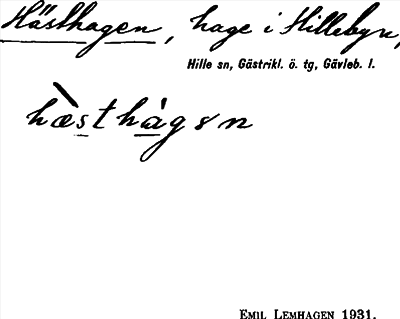 Hästhagen, hage i Hillebyn,
Hille sn, Gästrikl. ö. tg, Gävleb. l.
hæ̀sthàgən
EMIL LEMHAGEN 1931.